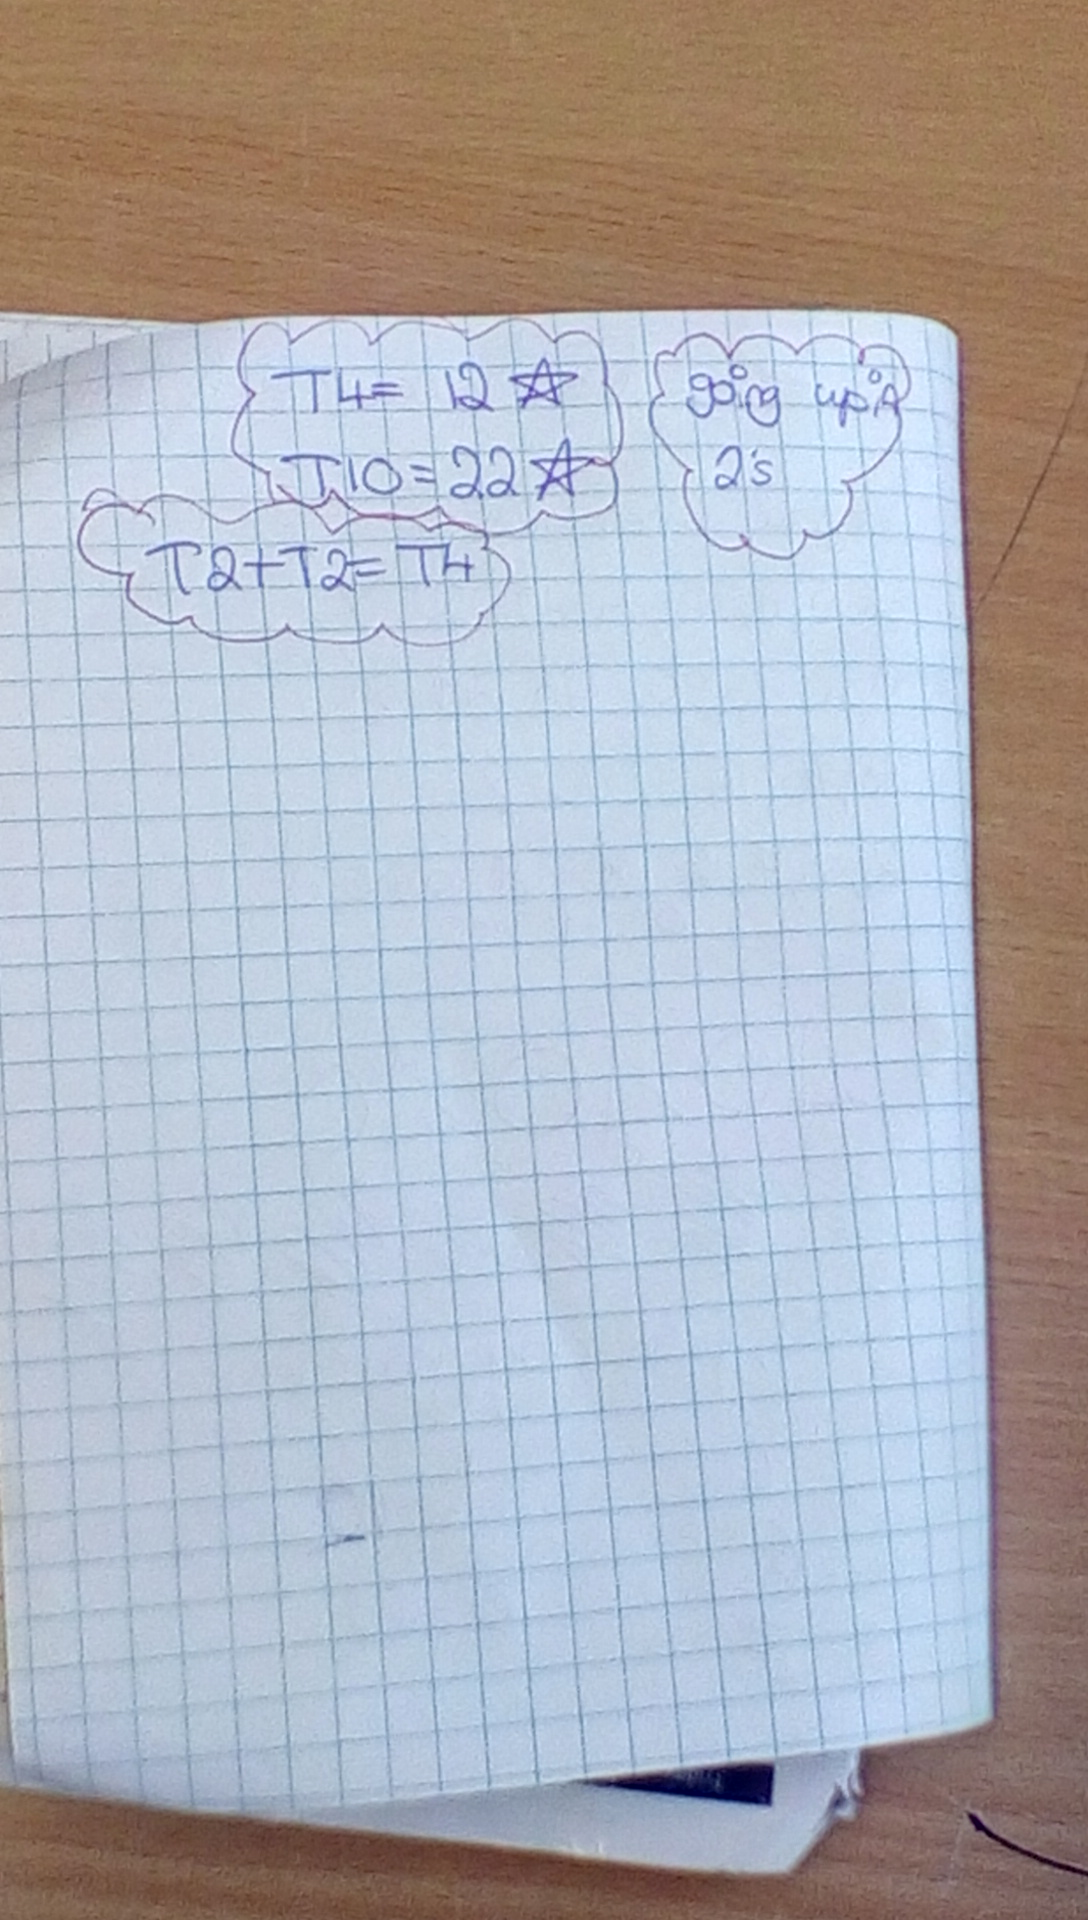 T4= 12 ☆
T10=22☆
going up in
2's
T2+T2= T4